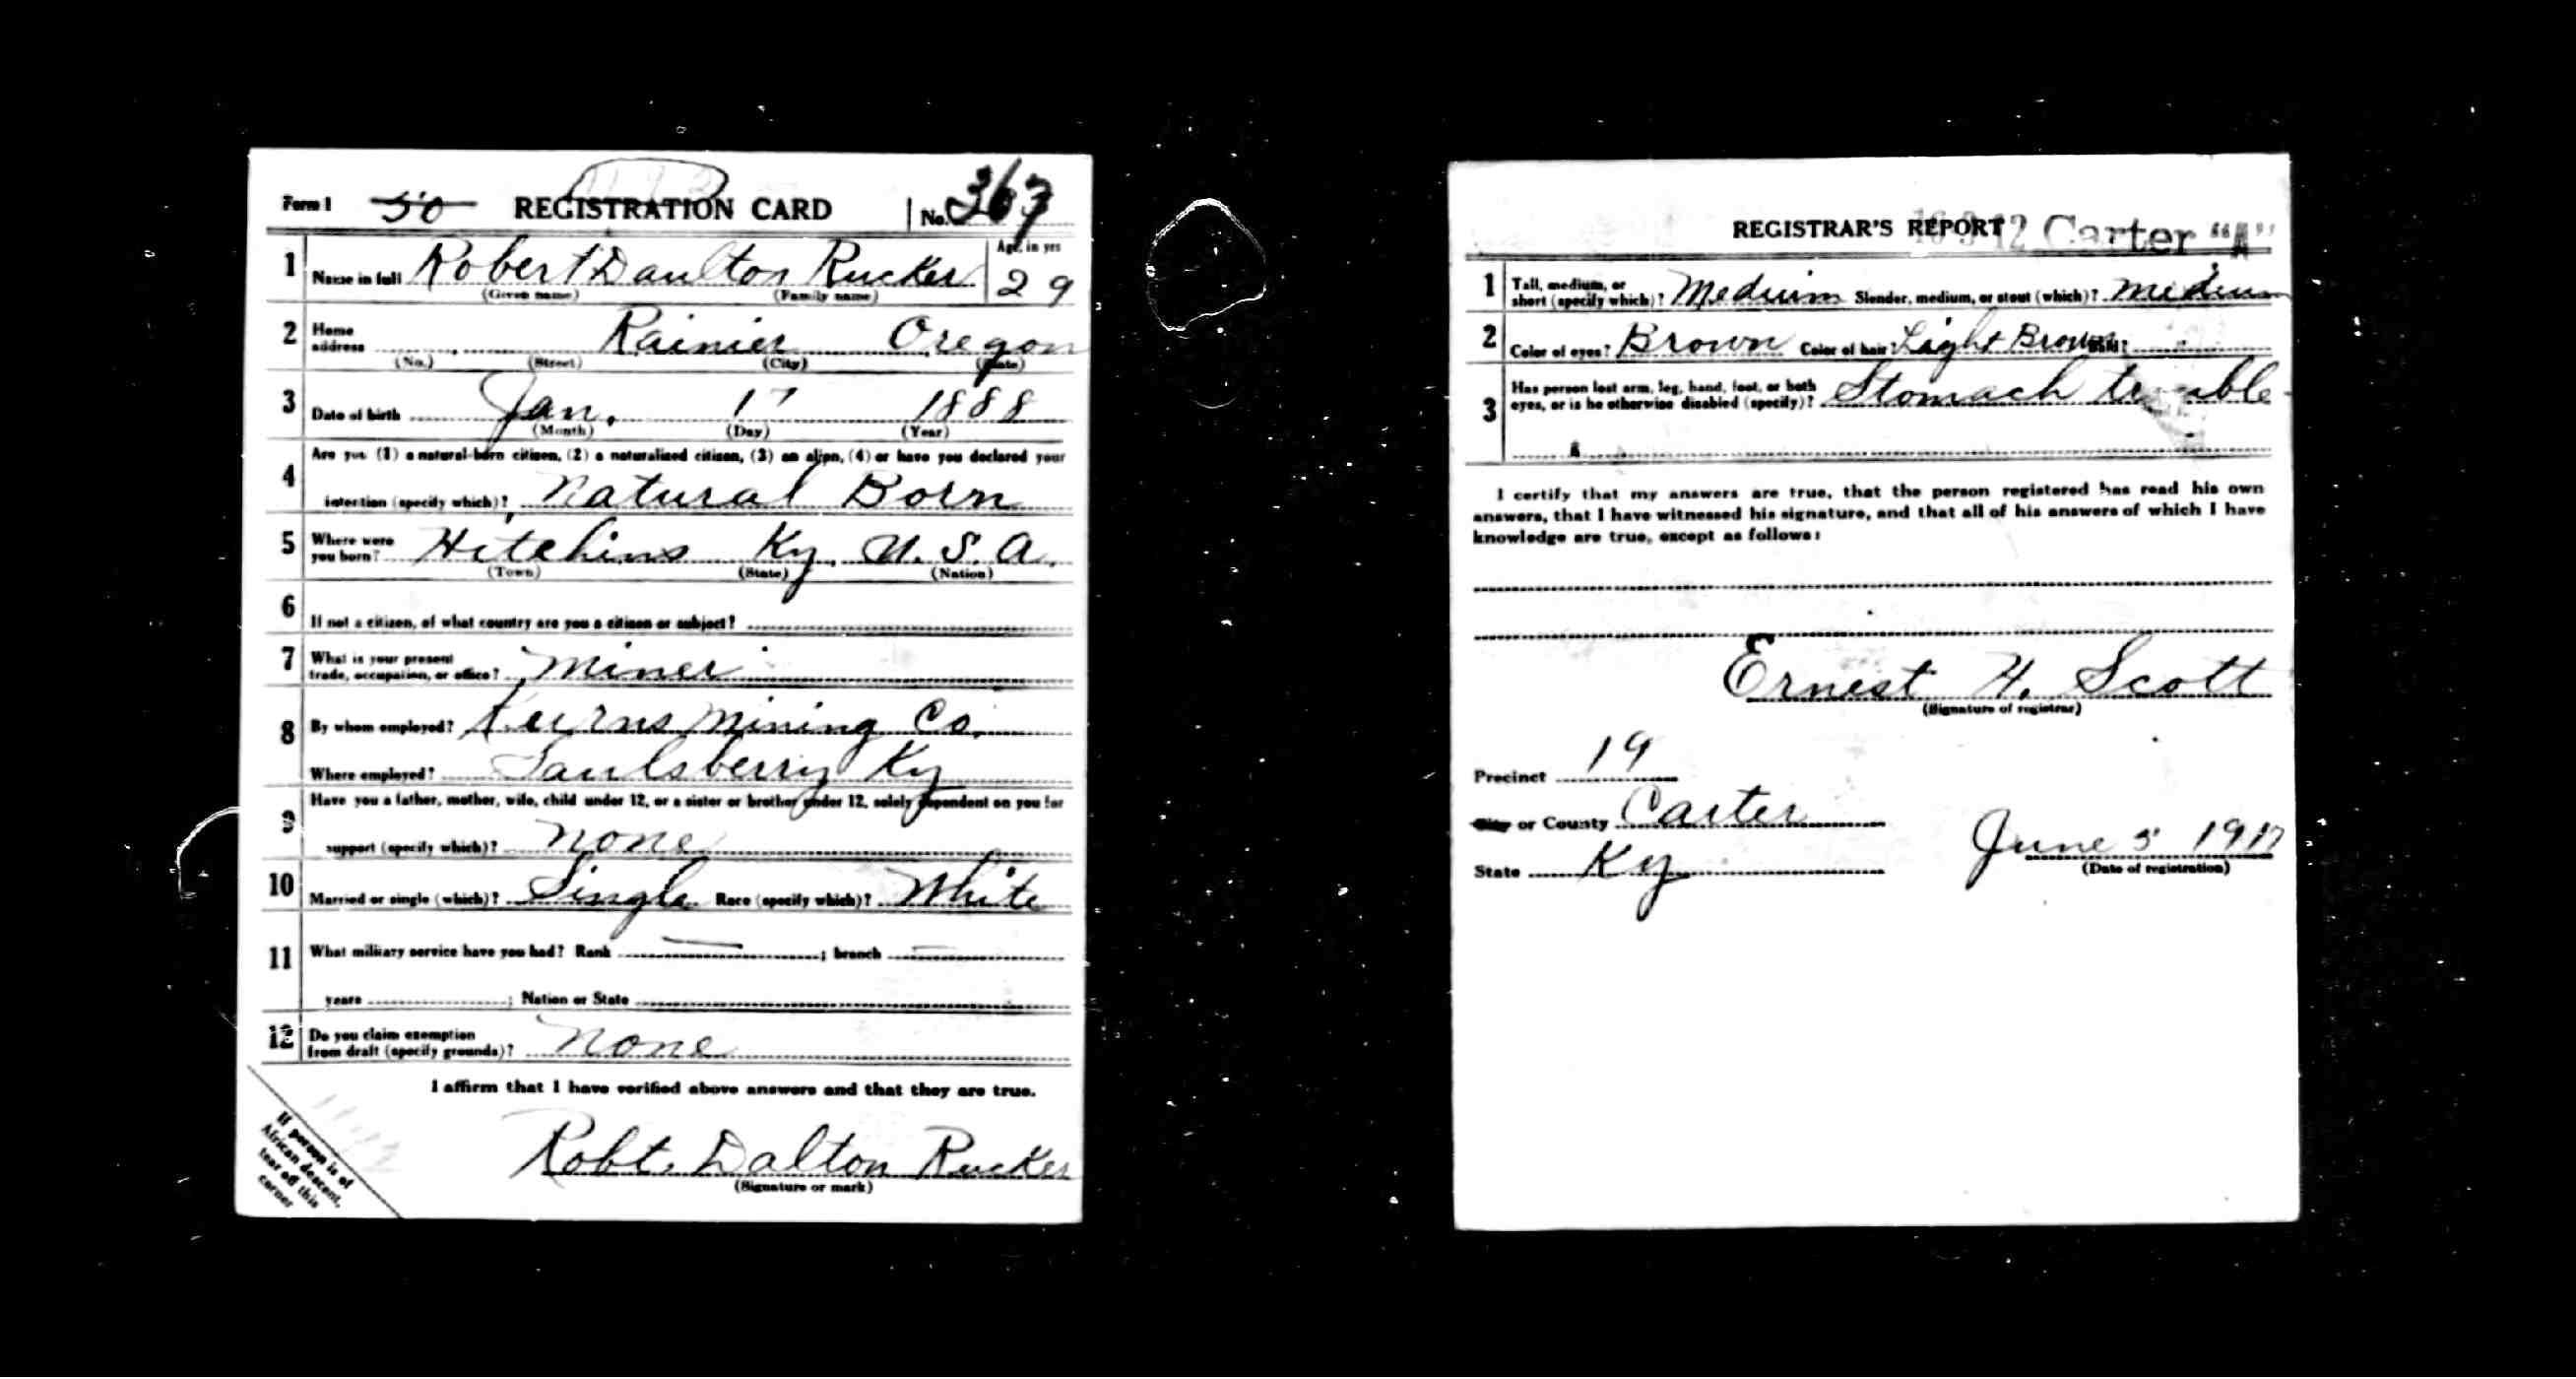 Form 1 50 REGISTRATION CARD No. 367
1 Name in full Robert Daulton Rucker Age, in yrs 29
(Given name) (Family name)
2 Home address Rainier Oregon
(No.) (Street) (City) (State)
3 Date of birth Jan. 17 1888
(Month) (Day) (Year)
4 Are you (1) a natural-born citizen, (2) a naturalized citizen, (3) an alien, (4) or have you declared your
intention (specify which)? Natural Born
5 Where were you born? Hitchins Ky. U.S.A.
(Town) (State) (Nation)
6 If not a citizen, of what country are you a citizen or subject?
7 What is your present trade, occupation, or office? Miner
8 By whom employed? Kurns Mining Co.
Where employed? Saulsberry Ky
9 Have you a father, mother, wife, child under 12, or a sister or brother under 12, solely dependent on you for
support (specify which)? None
10 Married or single (which)? Single Race (specify which)? White
11 What military service have you had? Rank — ; branch —
years ; Nation or State
12 Do you claim exemption from draft (specify grounds)? None
I affirm that I have verified above answers and that they are true.
Robt. Dalton Rucker
(Signature or mark)
If person is of
African descent,
tear off this
corner
REGISTRAR'S REPORT Carter "A"
1 Tall, medium, or short (specify which)? Medium Slender, medium, or stout (which)? Medium
2 Color of eyes? Brown Color of hair? Light Brown Bald?
3 Has person lost arm, leg, hand, foot, or both
eyes, or is he otherwise disabled (specify)? Stomach trouble
I certify that my answers are true, that the person registered has read his own
answers, that I have witnessed his signature, and that all of his answers of which I have
knowledge are true, except as follows:
Ernest H. Scott
(Signature of registrar)
Precinct 19
City or County Carter
State Ky
June 5 1917
(Date of registration)